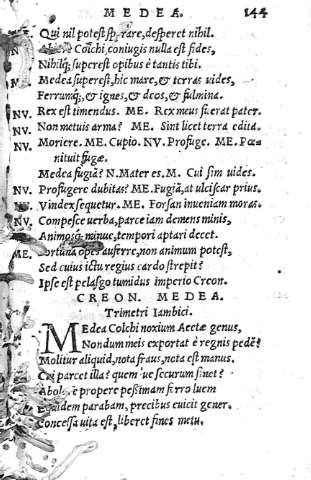 MEDEA. 144
Qui nil potest sperare, desperet nihil.
Abiere Colchi, coniugis nulla est fides,
Nihilq; superest opibus è tantis tibi.
Medea superest, hic mare, & terras uides,
Ferrumq;, & ignes, & deos, & fulmina.
NV. Rex est timendus. ME. Rex meus fuerat pater.
NV. Non metuis arma? ME. Sint licet terra edita.
NV. Moriere. ME. Cupio. NV. Profuge. ME. Pœ
nituit fugæ.
Medea fugiā? N. Mater es. M. Cui sim uides.
NV. Profugere dubitas? ME. Fugiā, at ulciscar prius.
NV. Vindex sequetur. ME. Forsan inueniam moras.
NV. Compesce uerba, parce iam demens minis,
Animosq; minue, tempori aptari decet.
ME. Fortuna opes auferre, non animum potest,
Sed cuius ictu regius cardo strepit?
Ipse est pelasgo tumidus imperio Creon.
CREON. MEDEA.
Trimetri Iambici.
MEdea Colchi noxium Aeetæ genus,
Nondum meis exportat è regnis pedē?
Molitur aliquid, nota fraus, nota est manus.
Cui parcet illa? quem ue securum sinet?
propere pessimam ferro luem
Equidem parabam, precibus euicit gener.
Concessa uita est, liberet fines metu.